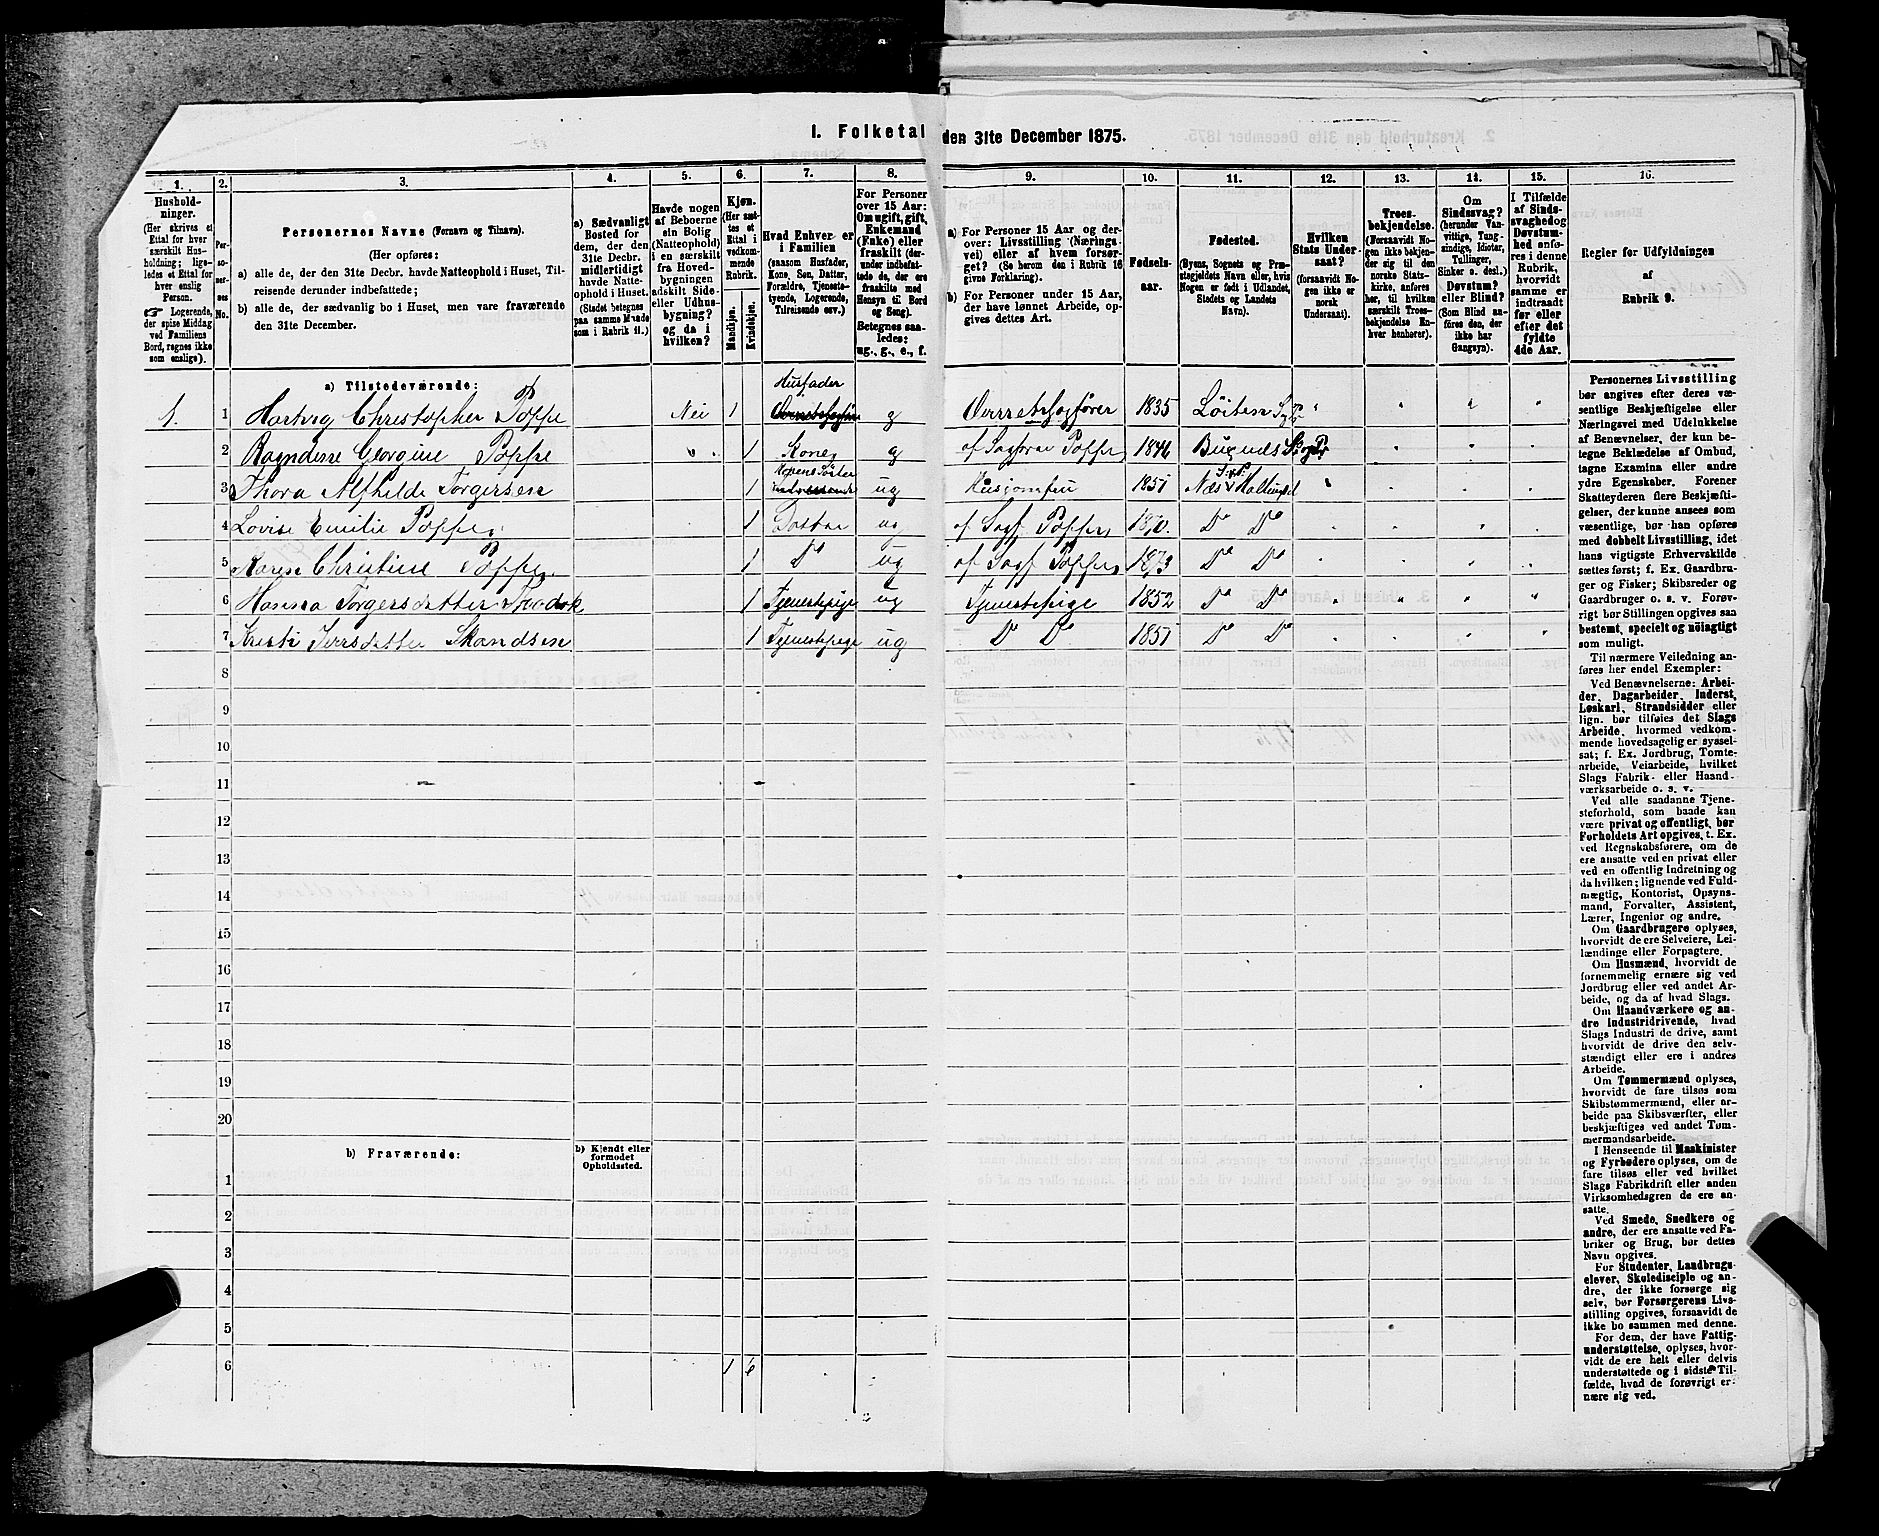 I. Folketal den 31te December 1875.
1.
Hushold-
ninger.
(Her skrives et
Ettal for hver
særskilt Hus-
holdning; lige-
ledes et Ettal for
hver enslig
Person.
Logerende,
der spise Middag
ved Familiens
Bord, regnes ikke
som enslige).
2.
Per-
so-
ner-
nes
No.
3.
Personernes Navne (Fornavn og Tilnavn).
(Her opføres:
a) alle de, der den 31te Decbr. havde Natteophold i Huset, Til-
reisende derunder indbefattede;
b) alle de, der sædvanlig bo i Huset, men vare fraværende
den 31te December.
4.
a) Sædvanligt
Bosted for
dem, der den
31te Decbr.
midlertidigt
havde Natte-
ophold i Huset.
(Stedet betegnes
paa samme Maade
som i Rubrik 11.)
5.
Havde nogen
af Beboerne
sin Bolig
(Natteophold)
i en særskilt
fra Hoved-
bygningen
adskilt Side-
eller Udhus-
bygning?
og da i
hvilken?
6.
Kjøn.
(Her sæt-
tes et
Ettal i
vedkom-
mende
Rubrik.
Mandkjøn.
Kvindekjøn.
7.
Hvad Enhver er
i Familien
(saasom Husfader,
Kone, Søn, Datter,
Forældre, Tjeneste-
tyende, Logerende,
Tilreisende osv.)
8.
For Personer
over 15 Aar:
Om ugift, gift,
Enkemand
(Enke) eller
fraskilt (der-
under indbefat-
tede de, der ere
fraskilte med
Hensyn til Bord
og Seng).
Betegnes saa-
ledes:
ug., g., e., f.
9.
a) For Personer 15 Aar og der-
over: Livsstilling (Nærings-
vei) eller af hvem forsør-
get? (Se herom den i Rubrik 16
givne Forklaring).
b) For Personer under 15 Aar,
der have lønnet Arbeide, op-
gives dettes Art.
10.
Fødsels-
aar.
11.
Fødested.
(Byens, Sognets og Præ-
stegjeldets Navn eller, hvis
Nogen er født i Udlandet,
Stedets og Landets
Navn).
12.
Hvilken
Stats Under-
saat?
(forsaavidt No-
gen ikke er
norsk
Undersaat).
13.
Troes-
bekjendelse.
(Forsaavidt No-
gen ikke bekjen-
der sig til den
norske Stats-
kirke, anføres
her, til hvilken
særskilt Troes-
bekjendelse En-
hver henhører).
14.
Om
Sindssvag?
(herunder Van-
vittige, Tung-
sindige, Idioter,
Tullinger,
Sinker o. desl.)
Døvstum?
eller Blind?
(Som Blind an-
føres den, der
ikke har
Gangsyn).
15.
I Tilfælde
af Sinds-
svaghed og
Døvstum-
hed anfø-
res i denne
Rubrik,
hvorvidt
samme er
indtraadt
før eller
efter det
fyldte
4de Aar.
16.
Regler for Udfyldningen
af
Rubrik 9.
a) Tilstedeværende:
1. 1 Hartvig Christopher Poppe Nei 1 Husfader g Overretssagfører 1835 Löiten
2 Ragndine Georgine Poppe 1 Kone g af Sagfører Poppe 1846
3 Thora Alfhilde Torgersen 1 Konens Söster ug Husjomfru 1851 Næs Hallingdal
4 Lovise Emilie Poppe 1 Datter ug af Sagf Poppe 1870. Do Do
5 Maren Christine Poppe 1 Do ug af Sagf Poppe 1873 Do Do
6 Hanna Torgersdatter 1 Tjenestepige ug Tjenestepige 1852 Do Do
7 Kristi Iversdatter 1 Tjenestepige ug Do Do 1851 Do Do
8
9
10
11
12
13
14
15
16
17
18
19
20
b) Fraværende:
b) Kjendt eller
formodet
Opholdssted.
1
2
3
4
5
6 1 6
Personernes Livsstilling
bør angives efter deres væ-
sentlige Beskjæftigelse eller
Næringsvei med Udelukkelse
af Benævnelser, der kun be-
tegne Beklædelse af Ombud,
tagne Examina eller andre
ydre Egenskaber. Forener
Skatteyderen flere Beskjæfti-
gelser, der kunne ansees som
væsentlige, bør han opføres
med dobbelt Livsstilling, idet
hans vigtigste Erhvervskilde
sættes først; f. Ex. Gaardbru-
ger og Fisker; Skibsreder og
Gaardbruger o. s. v. Forøv-
rigt bør Stillingen opgives saa
bestemt, specielt og nøiagtigt
som muligt.
Til nærmere Veiledning an-
føres her endel Exempler:
Ved Benævnelserne: Arbei-
der, Dagarbeider, Inderst,
Løskarl, Strandsidder eller
lign. bør tilføies det Slags
Arbeide, hvormed vedkom-
mende hovedsagelig er syssel-
sat; f. Ex. Jordbrug, Tomte-
arbeide, Veiarbeide, hvilket
Slags Fabrik- eller Haand-
værksarbeide o. s. v.
Ved alle saadanne Tjene-
steforhold, som baade kan
være privat og offentligt, bør
Forholdets Art opgives, t. Ex.
ved Regnskabsførere, om de
ere ansatte ved en privat eller
ved en offentlig Indretning og
da hvilken; lignende ved Fuld-
mægtig, Kontorist, Opsyns-
mand, Forvalter, Assistent,
Lærer, Ingeniør og andre.
Om Gaardbrugere oplyses,
hvorvidt de ere Selveiere, Lei-
lændinge eller Forpagtere.
Om Husmænd, hvorvidt de
fornemmelig ernære sig ved
Jordbrug eller ved andet Ar-
beide, og da af hvad Slags.
Om Haandværkere og an-
dre Industridrivende, hvad
Slags Industri de drive, samt
hvorvidt de drive den selv-
stændigt eller ere i andres
Arbeide.
Om Tømmermænd oplyses,
hvorvidt de fare tilsøs som
Skibstømmermænd, eller ar-
beide paa Skibsværfter, eller
beskjæftiges ved andet Tøm-
mermandsarbeide.
I Henseende til Maskinister
og Fyrbødere oplyses, om de
fare tilsøs eller ved hvilket
Slags Fabrikdrift eller anden
Virksomhedsgren de ere an-
satte.
Ved Smede, Snedkere og
andre, der ere ansatte ved Fa-
briker og Brug, bør dettes
Navn opgives.
For Studenter, Landbrugs-
elever, Skoledisciple og an-
dre, der ikke forsørge sig
selv, bør Forsørgerens Livs-
stilling opgives, forsaavidt de
ikke bo sammen med denne.
For dem, der have Fattig-
understøttelse, oplyses, hvor-
vidt de ere helt eller delvis
understøttede og i sidste Til-
fælde, hvad de forøvrigt er-
nære sig ved.